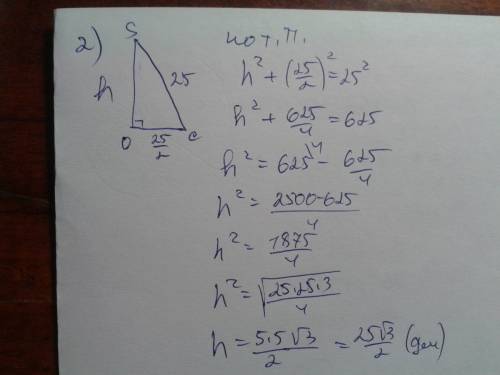 2)
S
h
25
O
25/2
C
по т. П.
h² + (25/2)² = 25²
h² + 625/4 = 625
h² = 625⁴ - 625/4
h² = 2500-625/4
h² = 1875/4
h² = √(25·25·3/4)
h = 5·5√3/2 = 25√3/2 (дм)